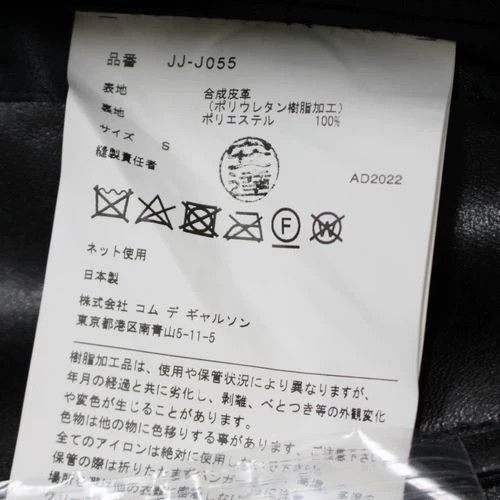 品番 JJ-J055
表地 合成皮革
(ポリウレタン樹脂加工)
裏地 ポリエステル 100%
サイズ S
縫製責任者
AD2022
F
W
ネット使用
日本製
株式会社 コム デ ギャルソン
東京都港区南青山5-11-5
樹脂加工品は、使用や保管状況により異なりますが、
年月の経過と共に劣化し、剥離、べとつき等の外観変化
や変色が生じることがあります。
色物は他の物に色移りする事があります。
全てのアイロンは絶対に使用しない
保管の際は折りたたまずハンガー